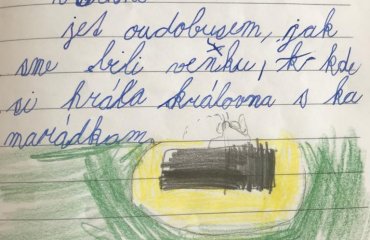 jet oudobusem, jak
sme bili veňku, kde
si hrála královna s ka
marádkam